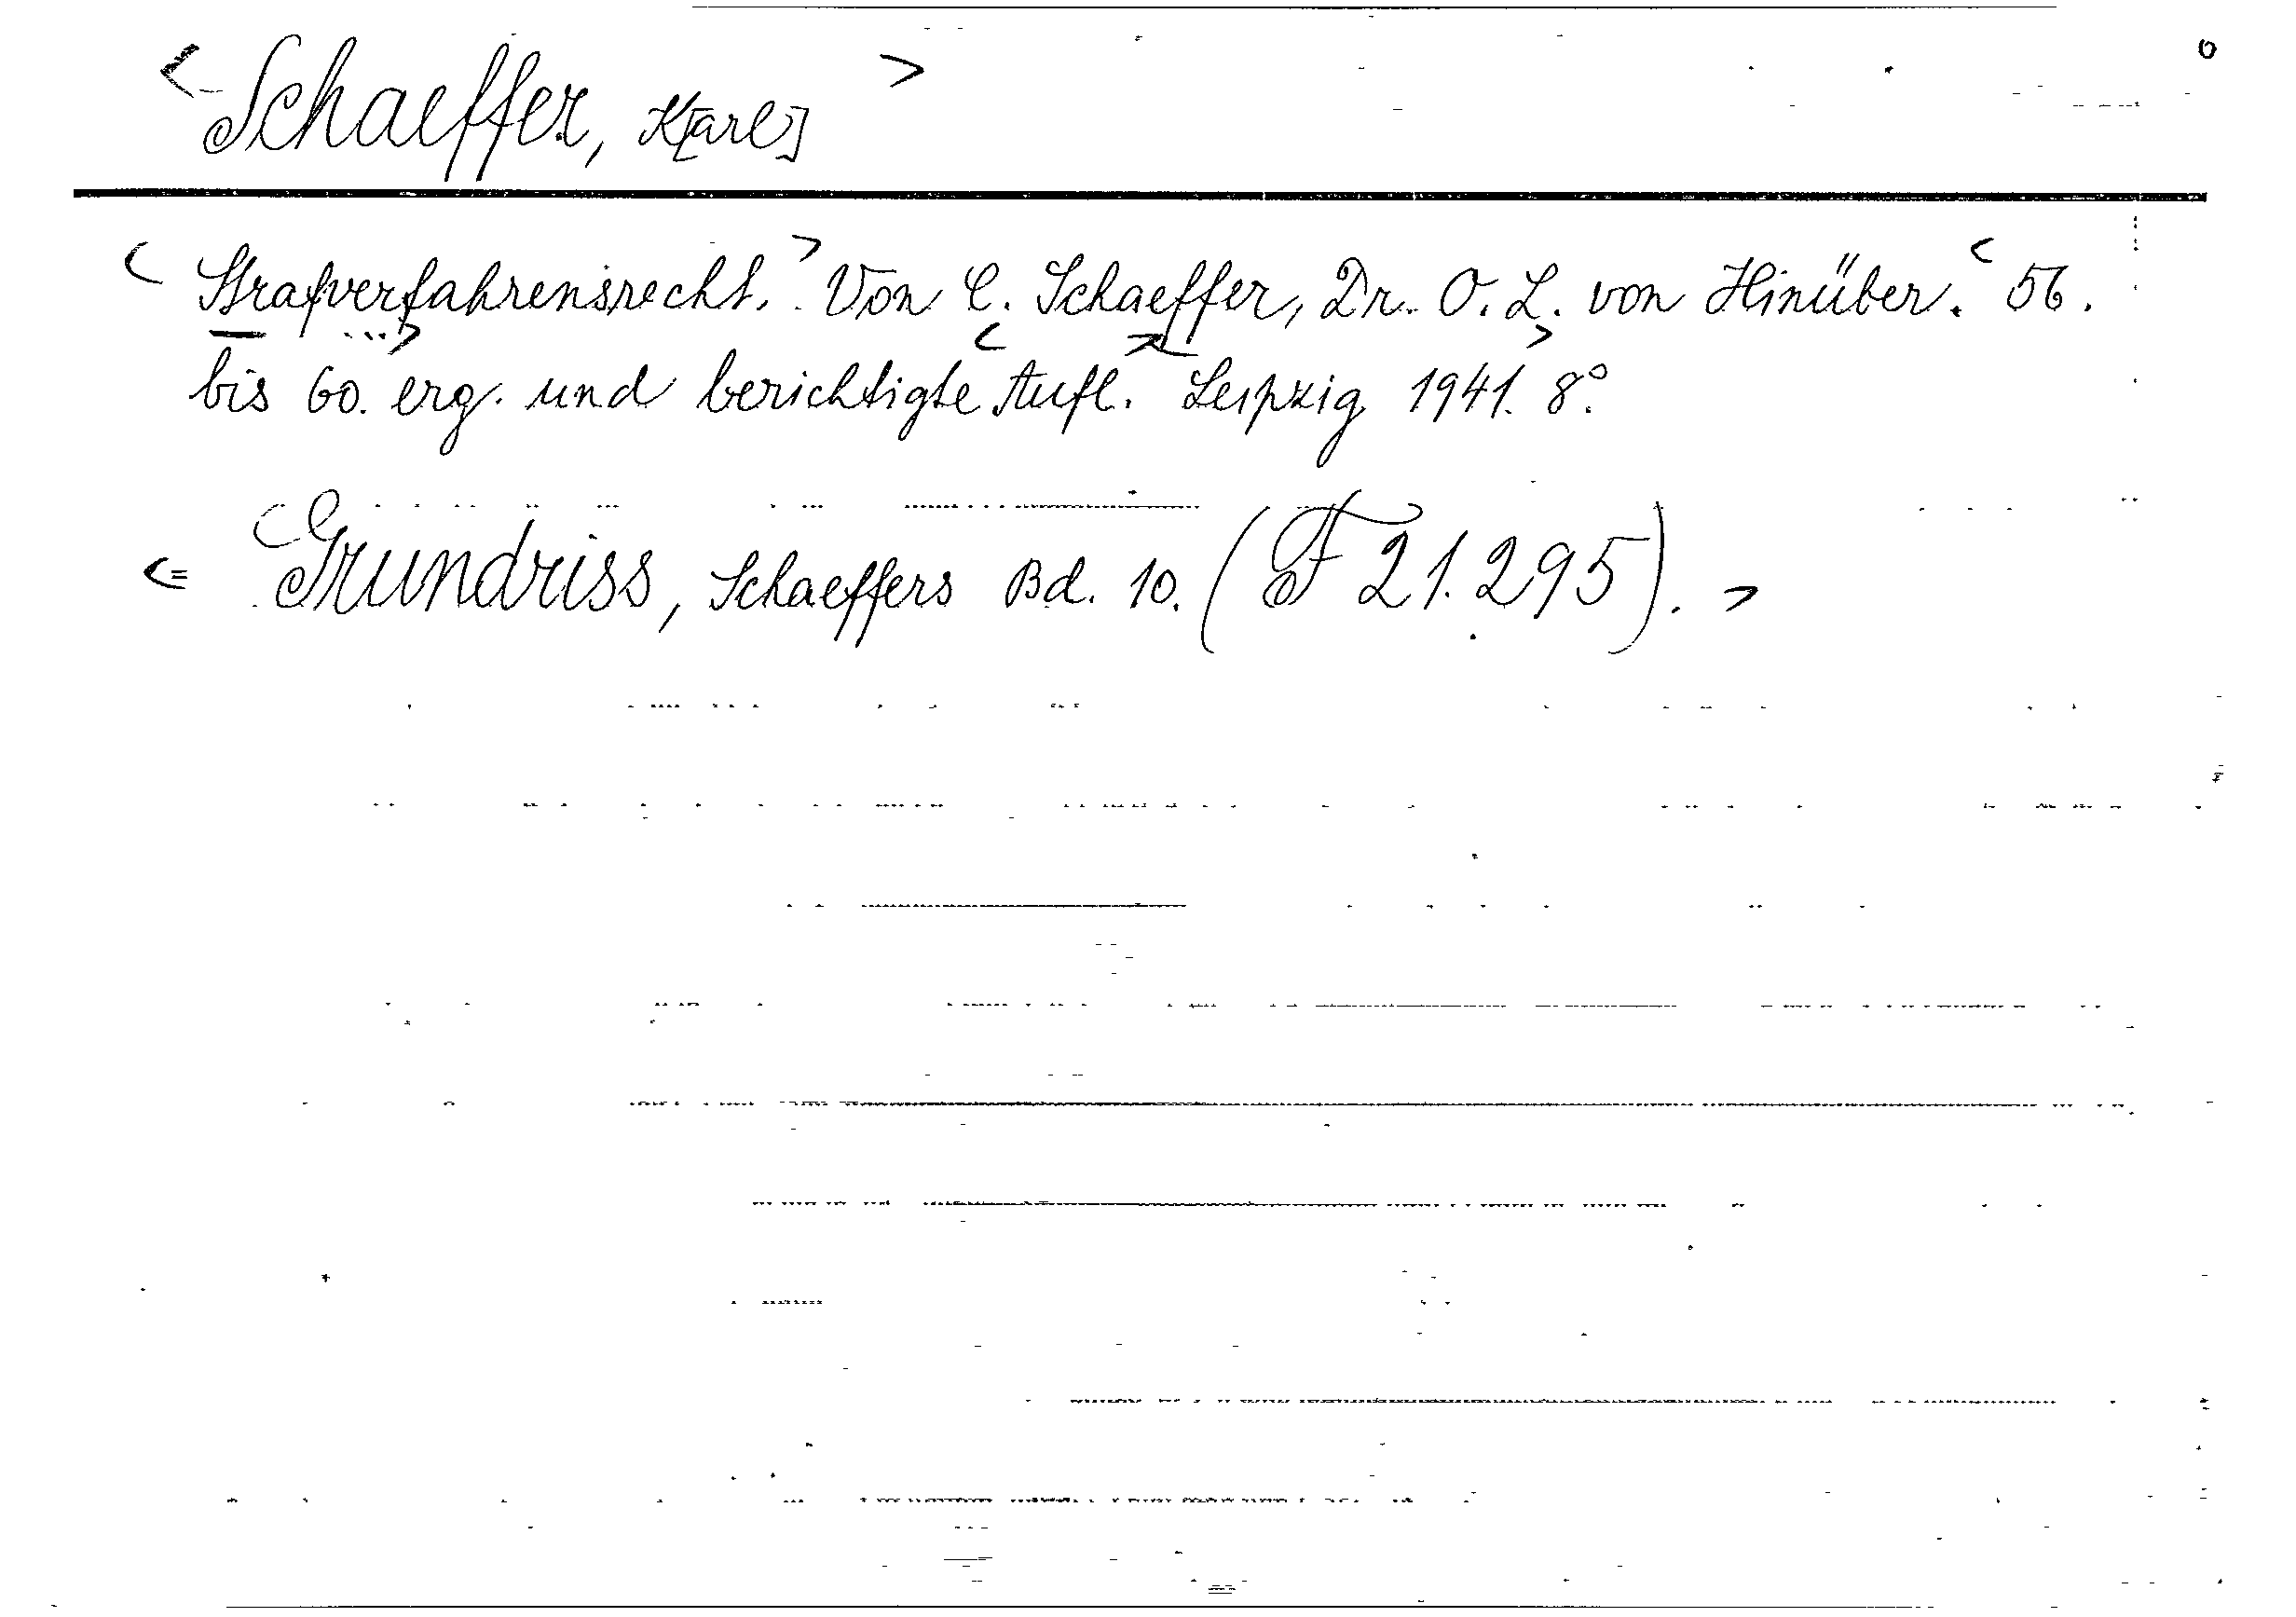 <Schaeffer, K[arl]>
<Strafverfahrensrecht.> Von C. Schaeffer, Dr. O. L. von Hinüber. <56.
bis 60.> erg. und berichtigte <Aufl.> Leipzig 1941.> 8°.
<= Grundriss, Schaeffers Bd. 10. (F 21.295).>